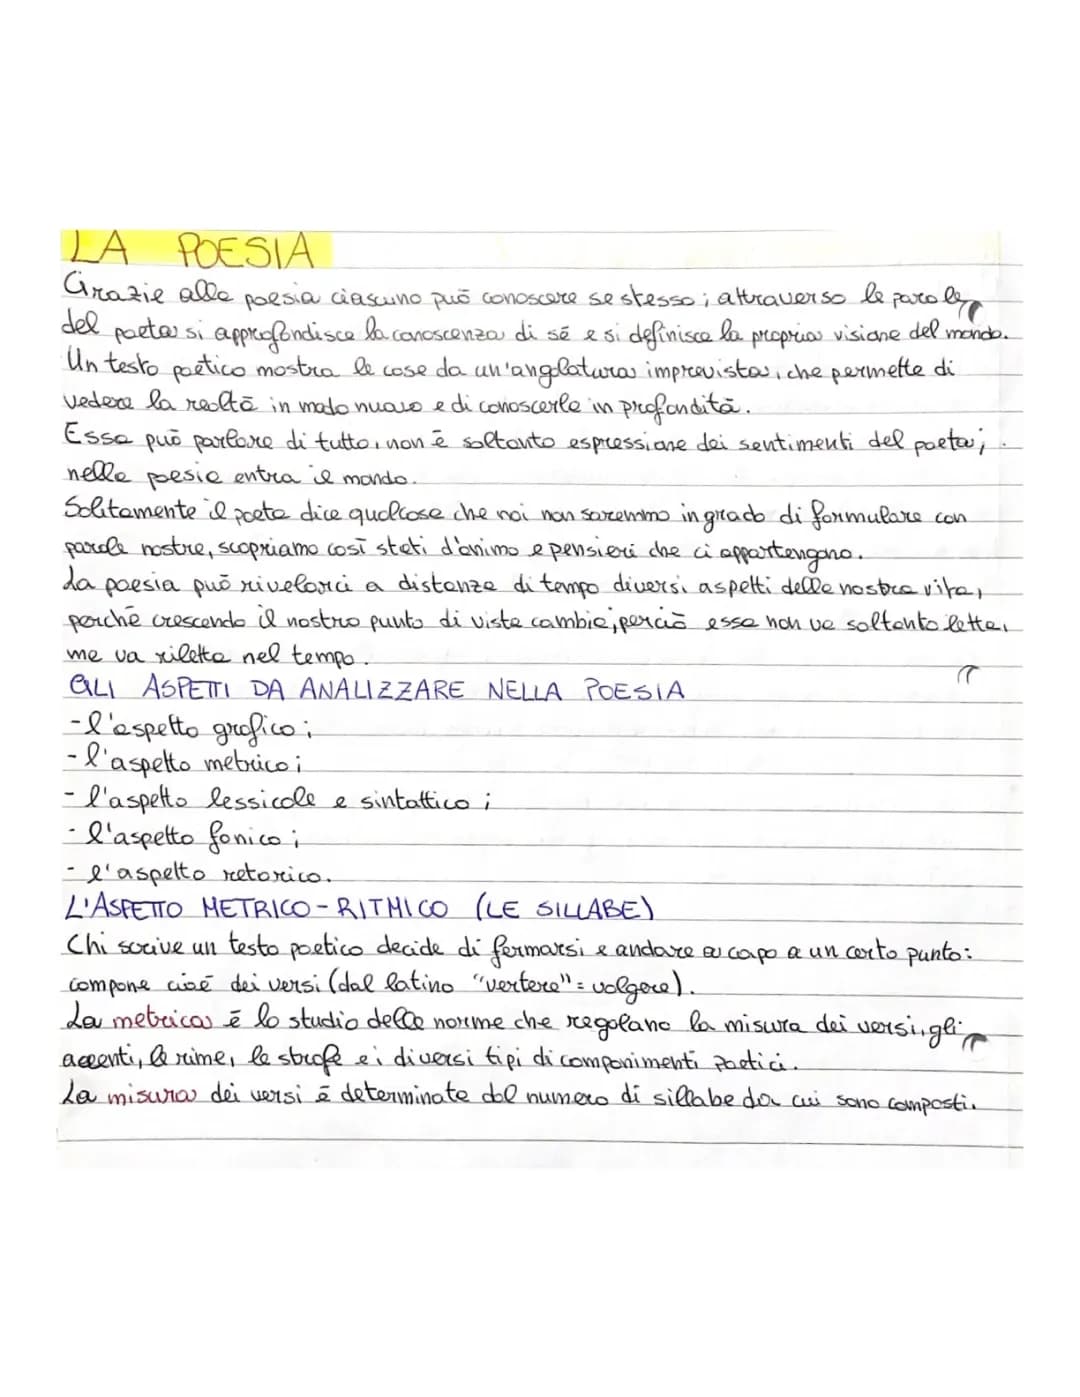 LA POESIA
Grazie alla poesia ciascuno può conoscere se stesso; attraverso le parole
del poeta si approfondisce la conoscenza di sé e si definisce la propria visione del mondo.
Un testo poetico mostra le cose da un'angolatura imprevista, che permette di
vedere la realtà in modo nuovo e di conoscerle in profondità.
Essa può parlare di tutto, non è soltanto espressione dei sentimenti del poeta;
nella poesia entra il mondo.
Solitamente il poeta dice qualcosa che noi non saremmo in grado di formulare con
parole nostre, scopriamo così stati d'animo e pensieri che ci appartengono.
La poesia può rivelarci a distanza di tempo diversi aspetti della nostra vita,
perché crescendo il nostro punto di vista cambia; perciò essa non va soltanto letta,
ma va riletta nel tempo.
GLI ASPETTI DA ANALIZZARE NELLA POESIA
- l'aspetto grafico;
- l'aspetto metrico;
- l'aspetto lessicale e sintattico;
- l'aspetto fonico;
- l'aspetto retorico.
L'ASPETTO METRICO-RITMICO (LE SILLABE)
Chi scrive un testo poetico decide di fermarsi e andare a capo a un certo punto:
compone cioè dei versi (dal latino "vertere" = volgere).
La metrica è lo studio delle norme che regolano la misura dei versi, gli
accenti, le rime, le strofe e i diversi tipi di componimenti poetici.
La misura dei versi è determinata dal numero di sillabe da cui sono composti.